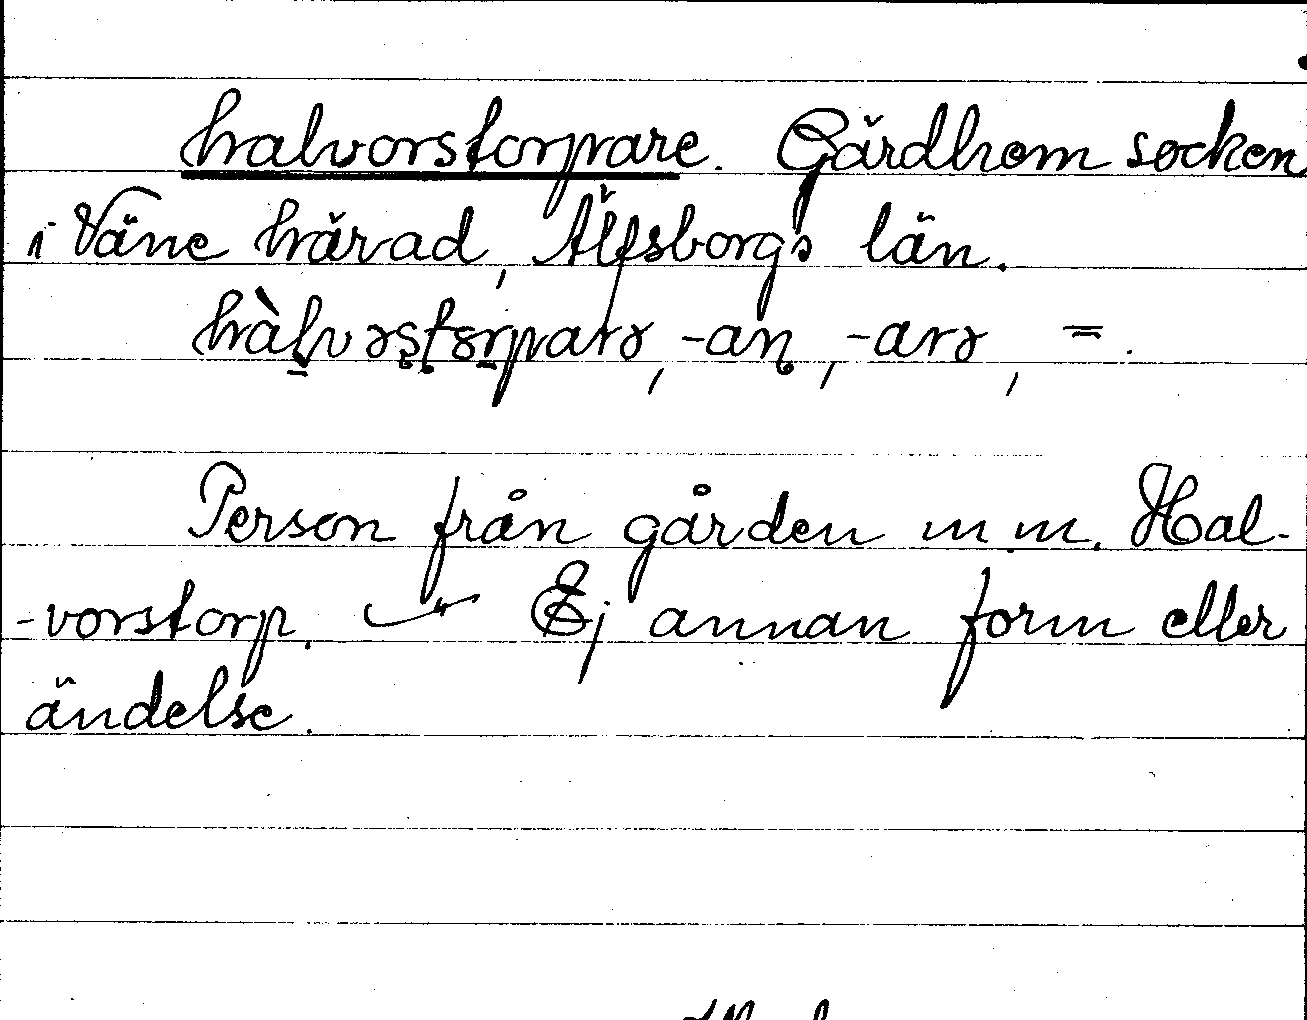 halvorstorpare. Gärdhem socken
i Väne härad, Älfsborgs län.
hàlvɔstɔrparɔ, -an, -arɔ, =.
Person från gården m m. Hal-
-vorstorp. Ej annan form eller
ändelse.